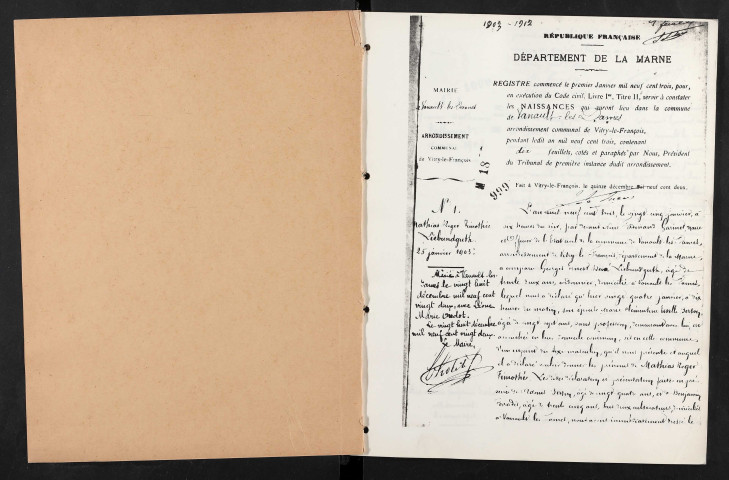 1903-1912
RÉPUBLIQUE FRANÇAISE
DÉPARTEMENT DE LA MARNE
MAIRIE
ARRONDISSEMENT
COMMUNAL
de Vitry-le-François
REGISTRE commencé le premier Janvier mil neuf cent trois, pour,
en exécution du Code civil, Livre Ier, Titre II, servir à constater
les NAISSANCES qui auront lieu dans la commune
de Vanault-les-Dames
arrondissement communal de Vitry-le-François,
pendant ledit an mil neuf cent trois, contenant
dix feuillets, cotés et paraphés par Nous, Président
du Tribunal de première instance dudit arrondissement.
M 18
999
Fait à Vitry-le-François, le quinze décembre mil neuf cent deux.
N° 1.
Mathias Roger Timothée
Liebundguth
25 janvier 1903.
Marié à Vanault-les-
Dames le vingt huit
décembre mil neuf cent
vingt deux, avec
Marie Oudot.
Le vingt huit décembre
mil neuf cent vingt deux.
Le Maire,
L'an mil neuf cent trois, le vingt cinq janvier, à
six heures du soir, par devant nous
officier de l'état civil de la commune de Vanault-les-Dames,
arrondissement de Vitry-le-François, département de la Marne,
a comparu Georges Liebundguth, âgé de
trente deux ans, domicilié à Vanault-les-Dames,
lequel nous a déclaré que hier vingt quatre janvier, à dix
heures du matin,
âgée de vingt sept ans, sans profession, demeurant avec lui, est
accouchée en leur domicile commun, en cette commune,
d'un enfant du sexe masculin, qu'il nous présente et auquel
il a déclaré vouloir donner les prénoms de Mathias Roger
Timothée. Lesdites déclaration et présentation faites en pré-
sence de âgé de vingt quatre ans, et de Benjamin
âgé de trente cinq ans, tous deux cultivateurs, domiciliés
à Vanault-les-Dames, nous avons immédiatement dressé le